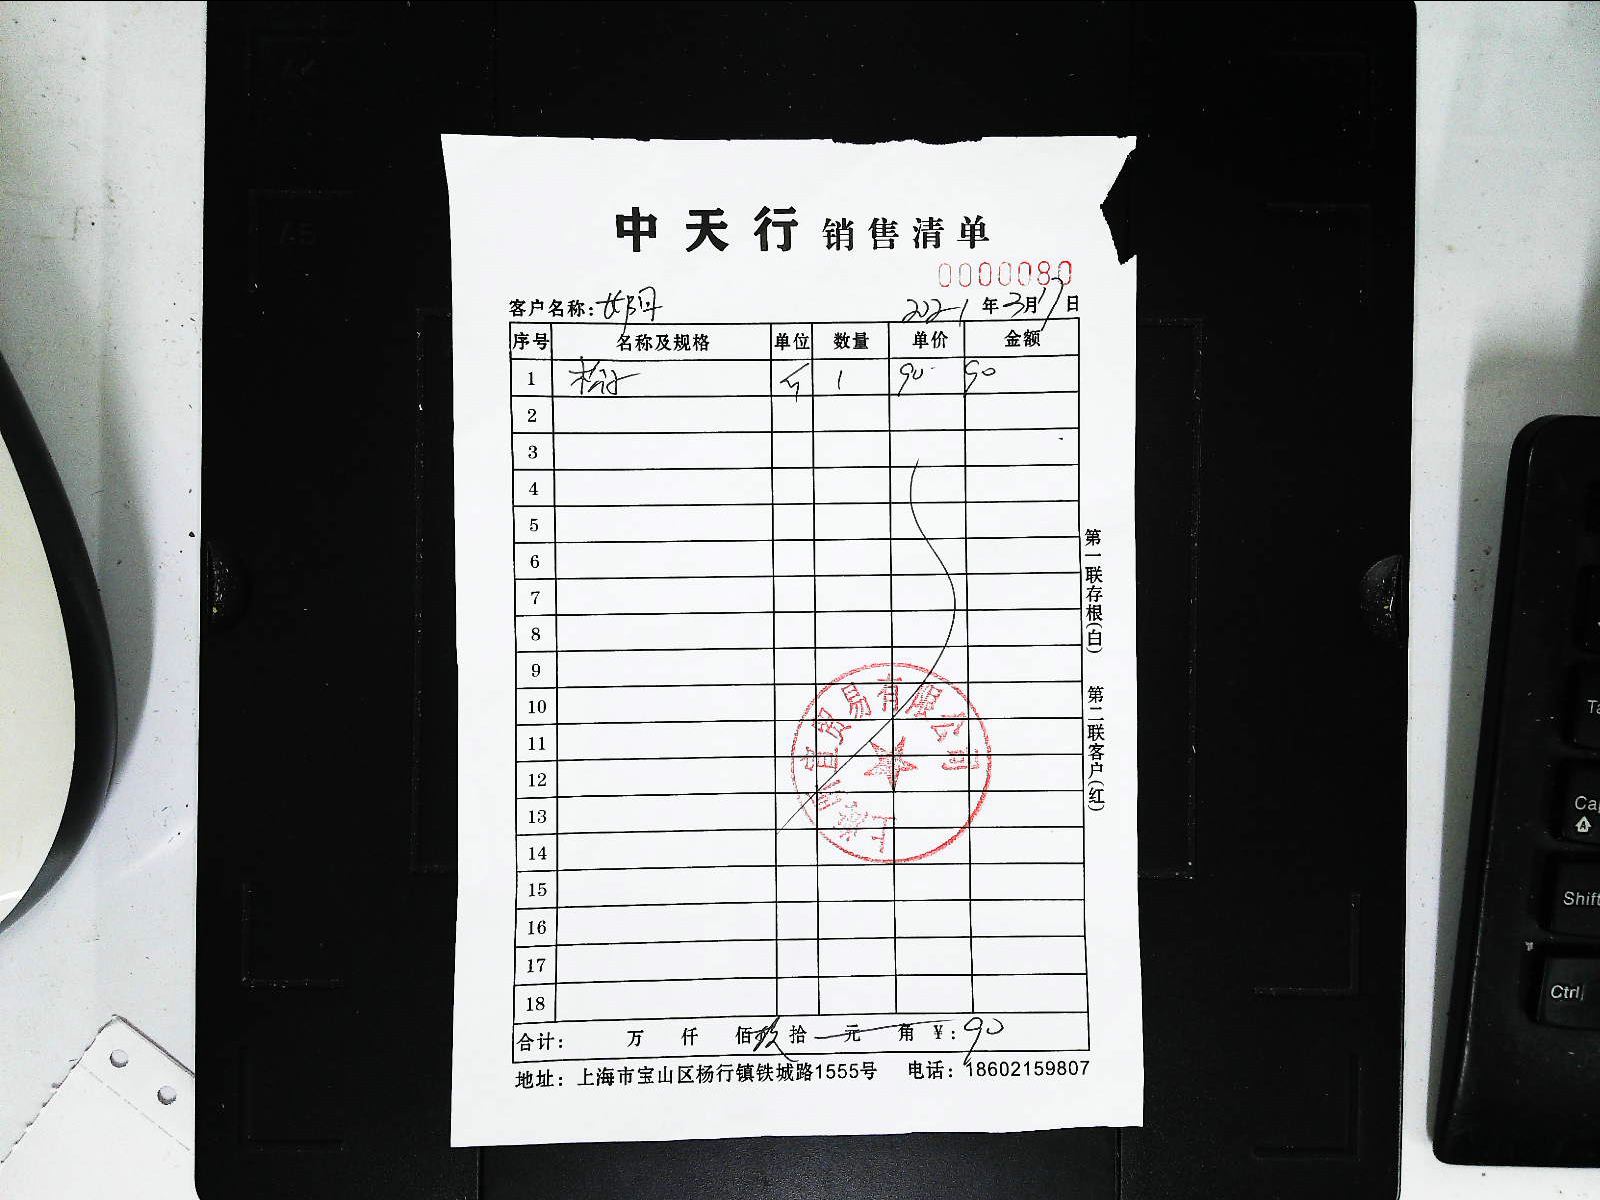 中天行 销售清单
0000080
客户名称: 2021年3月17日
序号 名称及规格 单位 数量 单价 金额
1 个 1 90 90
2
3
4
5
6
7
8
9
10
11
12
13
14
15
16
17
18
合计: 万 仟 佰 玖 拾 元 角 ¥: 90
地址: 上海市宝山区杨行镇铁城路1555号 电话: 18602159807
第一联存根(白) 第二联客户(红)
贸易有限公司
A5
Ta
Cap
Shift
Ctrl